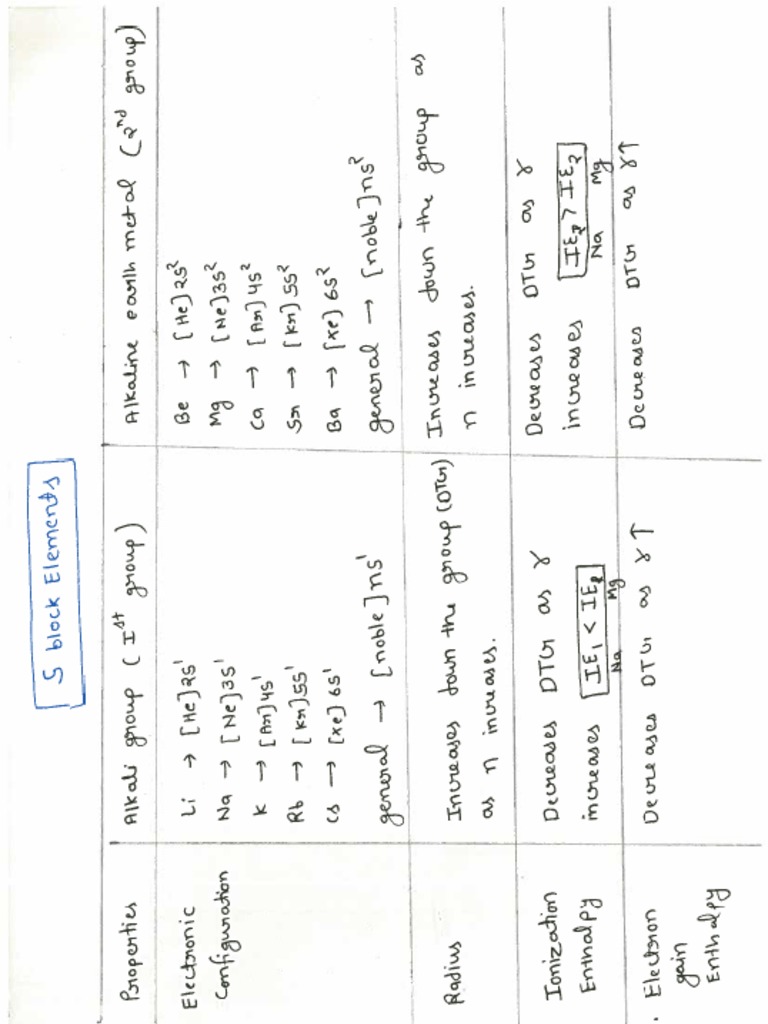 S block Elements
Properties
Alkali group (Ist group)
Alkaline earth metal (2nd group)
Electronic
Configuration
Li → [He]2s¹
Na → [Ne]3s¹
K → [Ar]4s¹
Rb → [Kr]5s¹
Cs → [Xe]6s¹
general → [noble]ns¹
Be → [He]2s²
Mg → [Ne]3s²
Ca → [Ar]4s²
Sr → [Kr]5s²
Ba → [Xe]6s²
general → [noble]ns²
Radius
Increases down the group (DTG)
as n increases.
Increases down the group as
n increases.
Ionization
Enthalpy
Decreases DTG as r
increases IE₁ < IE₂
Na Mg
Decreases DTG as r
increases IE₂ > IE₂
Na Mg
Electron
gain
Enthalpy
Decreases DTG as r↑
Decreases DTG as r↑